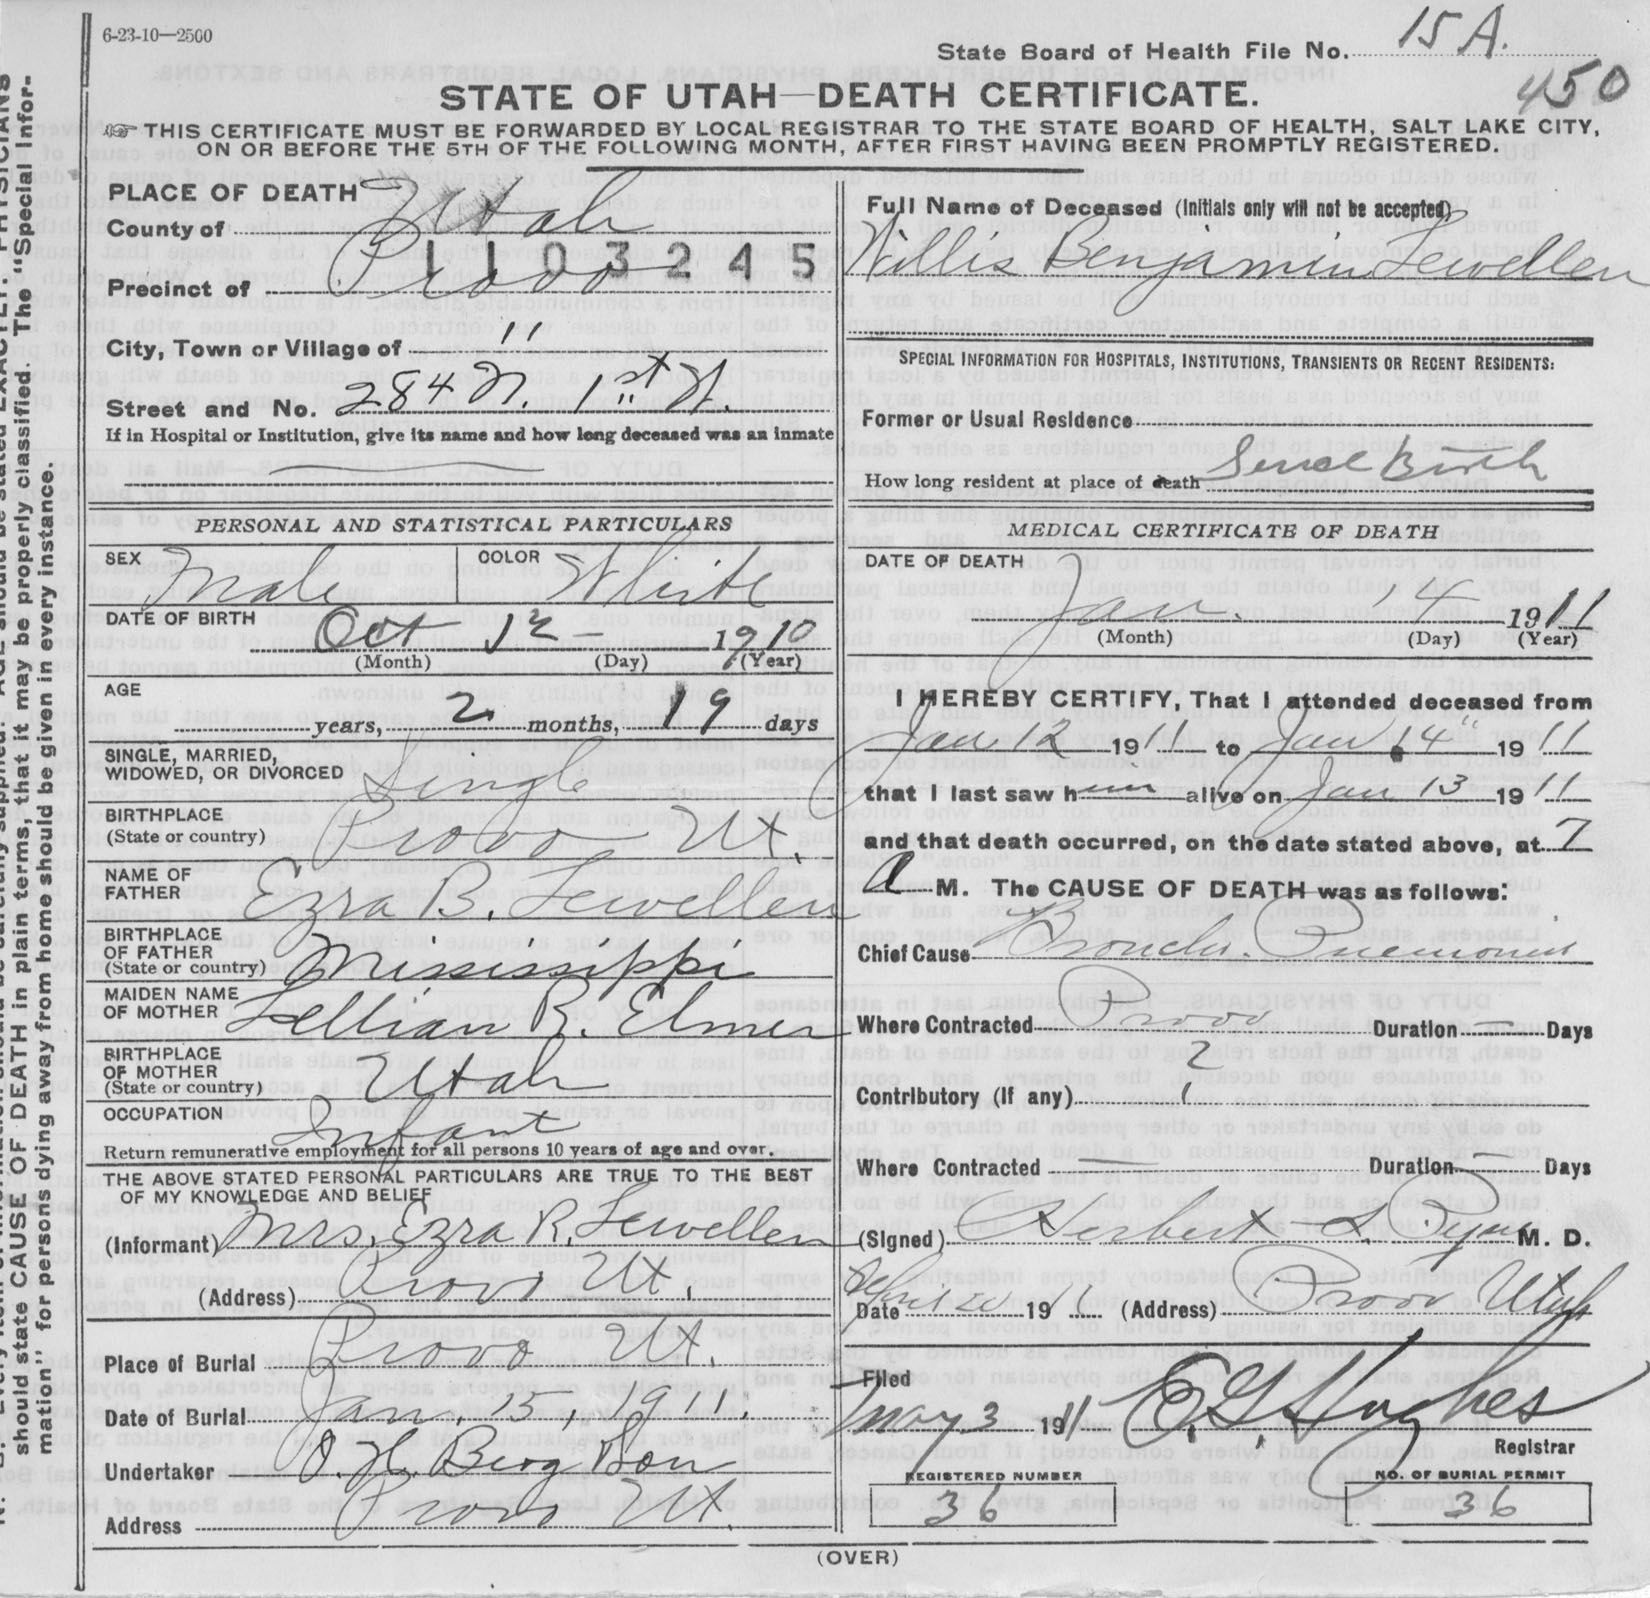 6-23-10—2500
State Board of Health File No. 15 A.
450
STATE OF UTAH—DEATH CERTIFICATE.
THIS CERTIFICATE MUST BE FORWARDED BY LOCAL REGISTRAR TO THE STATE BOARD OF HEALTH, SALT LAKE CITY,
ON OR BEFORE THE 5TH OF THE FOLLOWING MONTH, AFTER FIRST HAVING BEEN PROMPTLY REGISTERED.
PLACE OF DEATH
County of Utah
1103245
Precinct of Provo
City, Town or Village of "
Street and No. 284 N. 1st St.
If in Hospital or Institution, give its name and how long deceased was an inmate
PERSONAL AND STATISTICAL PARTICULARS
SEX Male COLOR White
DATE OF BIRTH Oct 12 1910
(Month) (Day) (Year)
AGE
years, 2 months, 19 days
SINGLE, MARRIED,
WIDOWED, OR DIVORCED Single
BIRTHPLACE
(State or country) Provo Ut.
NAME OF
FATHER Ezra B. Lewellen
BIRTHPLACE
OF FATHER
(State or country) Mississippi
MAIDEN NAME
OF MOTHER Lellian R. Elmer
BIRTHPLACE
OF MOTHER
(State or country) Utah
OCCUPATION Infant
Return remunerative employment for all persons 10 years of age and over.
THE ABOVE STATED PERSONAL PARTICULARS ARE TRUE TO THE BEST
OF MY KNOWLEDGE AND BELIEF
(Informant) Mrs. Ezra R. Lewellen
(Address) Provo Ut.
Place of Burial Provo Ut.
Date of Burial Jan. 15, 1911.
Undertaker O. H. Berg Son
Address Provo Ut.
Full Name of Deceased (Initials only will not be accepted)
Willis Benjamin Lewellen
SPECIAL INFORMATION FOR HOSPITALS, INSTITUTIONS, TRANSIENTS OR RECENT RESIDENTS:
Former or Usual Residence
How long resident at place of death Since Birth
MEDICAL CERTIFICATE OF DEATH
DATE OF DEATH
Jan. 4 1911
(Month) (Day) (Year)
I HEREBY CERTIFY, That I attended deceased from
Jan 12 1911 to Jan. 4" 1911
that I last saw him alive on Jan 13 1911
and that death occurred, on the date stated above, at 7
a M. The CAUSE OF DEATH was as follows:
Chief Cause Broncho. Pnemonia
Where Contracted Provo Duration — Days
Contributory (If any) ?
Where Contracted — Duration — Days
(Signed) Herbert S. Pyne M. D.
Date April 20 191 (Address) Provo Utah
Filed
May 3 1911 E. G. Hughes
Registrar
REGISTERED NUMBER NO. OF BURIAL PERMIT
36 36
(OVER)
should state CAUSE OF DEATH in plain terms, that it may be properly classified. The "Special Infor-
mation" for persons dying away from home should be given in every instance.